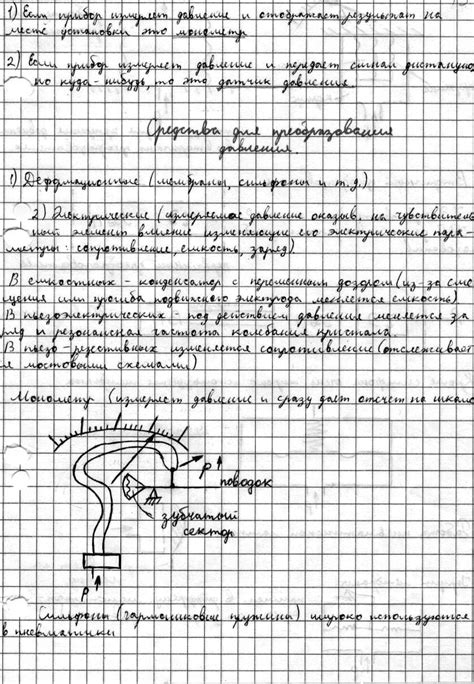 1) Если прибор измеряет давление и отображает результат на
месте установки это монометр
2) Если прибор измеряет давление и передает сигнал дистанцион
но куда-нибудь, то это датчик давления.
Средства для преобразования
давления.
1) Деформационные (мембраны, сильфоны и т.д.)
2) Электрические (измеряемое давление оказыв. на чувствитель
ный элемент влияние изменяющие его электрические пара-
метры: сопротивление, емкость, заряд)
В емкостных - конденсатор с переменным зазором (из-за сме
щения или прогиба подвижного электрода меняется емкость)
В пьезоэлектрических - под действием давления меняется за
ряд и резонансная частота колебания кристала.
В пьезо-резистивных изменяется сопротивление (отслеживает
я мостовыми схемами)
(измеряет давление и сразу дает отсчет на шкале
P
поводок
зубчатый
сектор
P
Сильфоны (гармониковые пружины) широко используются
в пневматики